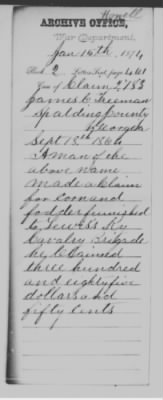 Howell
ARCHIVE OFFICE,
War Department,
Jan 15th, 1874
Book 2 Letters Sent, page 461
Case of Claim 2,183
James C Freeman
Spalding County
Georgia
Sept 13th 1864
A man of the
above name
made a Claim
for Corn and
fodder furnished
to Lewis's Ky
Cavalry Brigade
he Claimed
three hundred
and eighty five
dollars and
fifty Cents